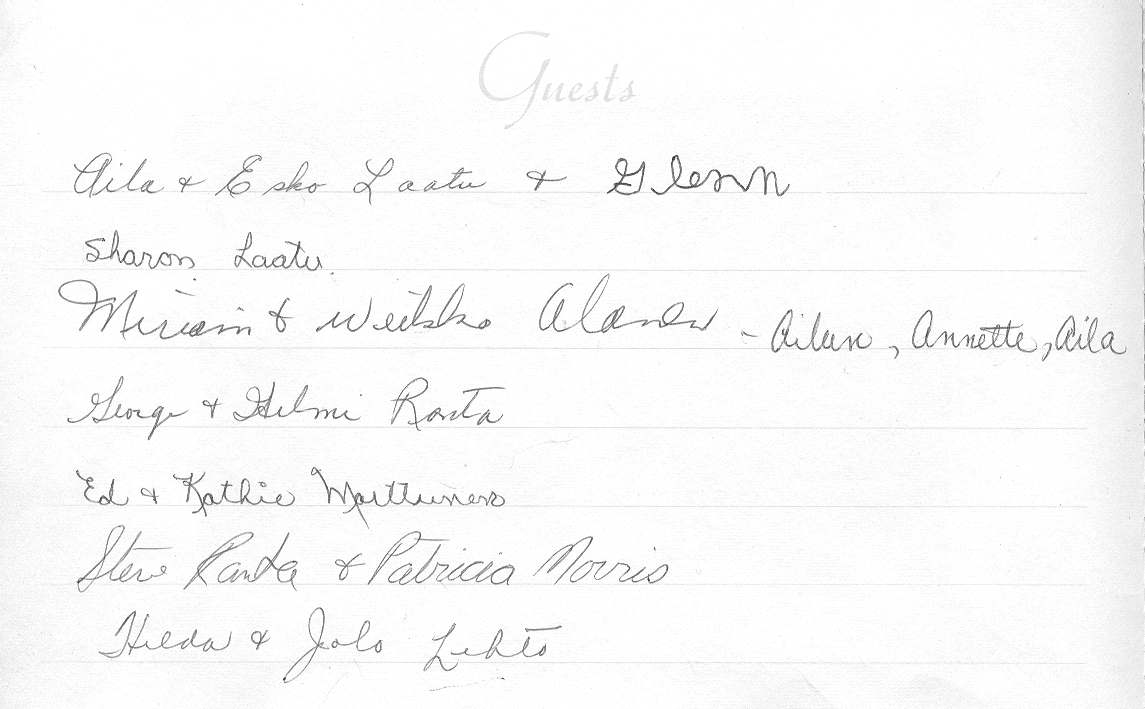 Guests
Aila & Esko Laatu & Glenn
Sharon Laatu.
Miriam & Veikko Alanen - Aileen, Annette, Aila
George & Helmi Ranta
Ed & Kathie Marttunen
Steve Ranta & Patricia Norris
Hilda & Jalo Lehto